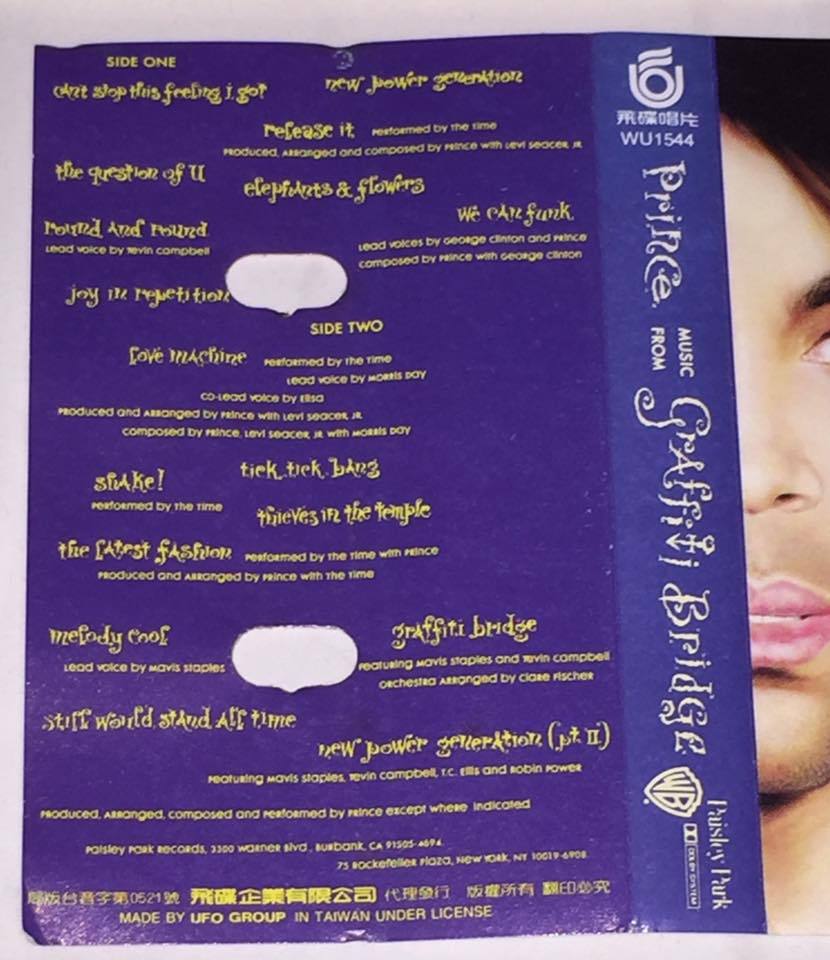 SIDE ONE
can't stop this feeling i got
new power generation
release it performed by the time
produced, arranged and composed by prince with levi seacer, jr.
the question of U
elephants & flowers
we can funk
round and round
lead voice by tevin campbell
lead voices by george clinton and prince
composed by prince with george clinton
joy in repetition
SIDE TWO
love machine performed by the time
lead voice by morris day
co-lead voice by elisa
produced and arranged by prince with levi seacer, jr.
composed by prince, levi seacer, jr. with morris day
shake!
tick, tick, bang
performed by the time
thieves in the temple
the latest fashion performed by the time with prince
produced and arranged by prince with the time
melody cool
graffiti bridge
lead voice by mavis staples
featuring mavis staples and tevin campbell
orchestra arranged by clare fischer
still would stand all time
new power generation (pt. II)
featuring mavis staples, tevin campbell, t.c. ellis and robin power
produced, arranged, composed and performed by prince except where indicated
paisley park records, 3300 warner blvd., burbank, ca 91505-4694.
75 rockefeller plaza, new york, ny 10019-6908.
局版台音字第0521號 飛碟企業有限公司 代理發行 版權所有 翻印必究
MADE BY UFO GROUP IN TAIWAN UNDER LICENSE
飛碟唱片
WU1544
prince
MUSIC
FROM
graffiti bridge
WB
Paisley Park
DOLBY SYSTEM